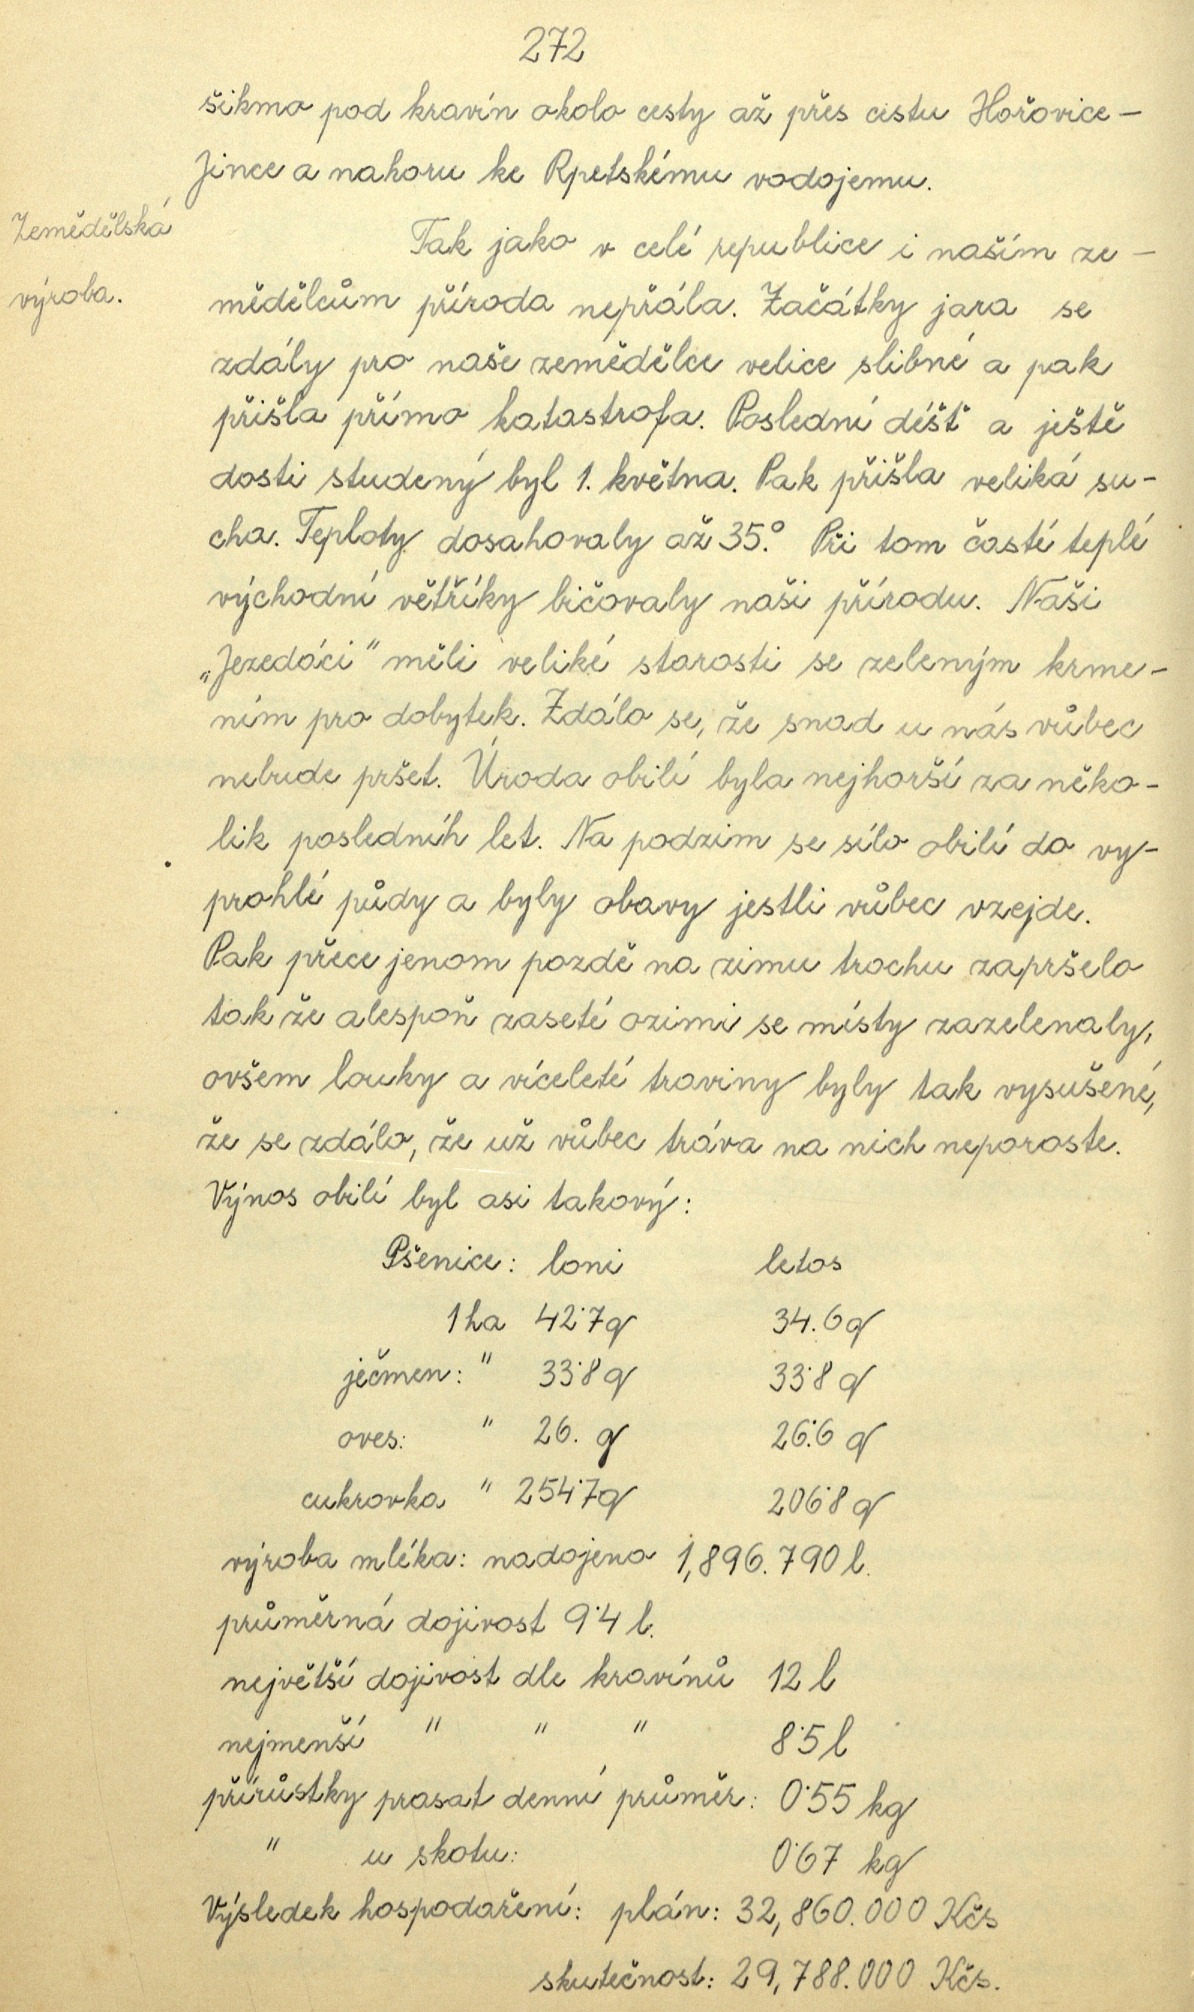 272
šikmo pod kravín okolo cesty až přes cestu Hořovice -
Jince a nahoru ke Rpetskému vodojemu.
Zemědělská
výroba.
Tak jako v celé republice i naším ze -
mědělcům příroda nepřála. Začátky jara se
zdály pro naše zemědělce velice slibné a pak
přišla přímo katastrofa. Poslední déšť a ještě
dosti studený byl 1. května. Pak přišla veliká su -
cha. Teploty dosahovaly až 35.° Při tom časté teplé
východní větříky bičovaly naši přírodu. Naši
„Jezeďáci" měli veliké starosti se zeleným krme -
ním pro dobytek. Zdálo se, že snad u nás vůbec
nebude pršet. Úroda obilí byla nejhorší za něko -
lik posledníh let. Na podzim se sílo obilí do vy -
prohlé půdy a byly obavy jestli vůbec vzejde.
Pak přece jenom pozdě na zimu trochu zapršelo
tak že alespoň zaseté ozimi se místy zazelenaly,
ovšem louky a víceleté traviny byly tak vysušené,
že se zdálo, že už vůbec tráva na nich neporoste.
Výnos obilí byl asi takový:
Pšenice: loni letos
1 ha 42˙7 q 34.6 q
ječmen: " 33˙8 q 33˙8 q
oves: " 26. q 26˙6 q
cukrovka " 254˙7 q 206˙8 q
výroba mléka: nadojeno 1,896.790 l.
průměrná dojivost 9˙4 l.
největší dojivost dle kravínů 12 l
nejmenší " " " 8˙5 l
přírůstky prasat denní průměr: 0˙55 kg
" u skotu: 0˙67 kg
Výsledek hospodaření: plán: 32,860.000 Kčs
skutečnost: 29,788.000 Kčs.